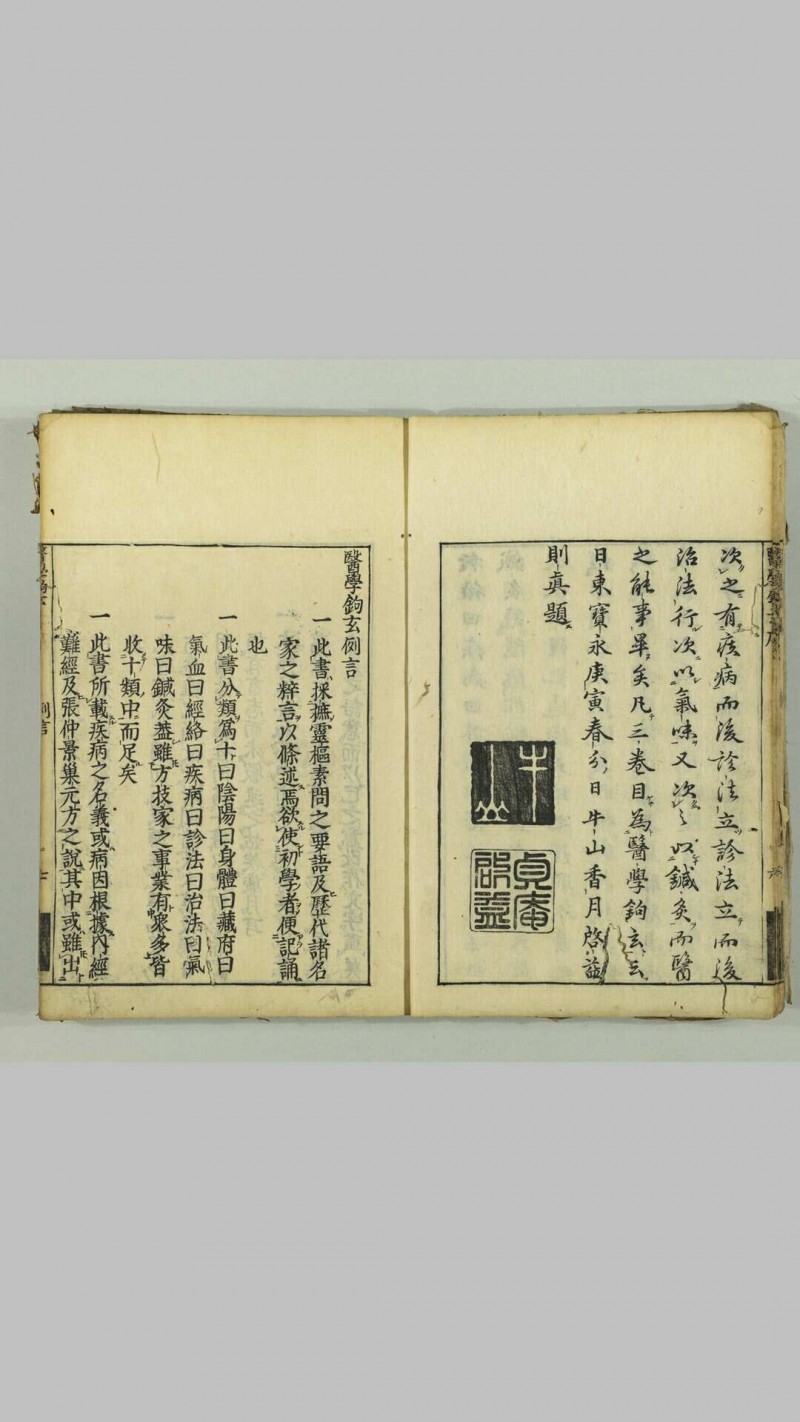 次之有疾病而後診法立診法立而後
治法行次以氣味又次之以鍼灸而醫
之能事畢矣凡三卷目為醫學鉤玄云
日東寶永庚寅春分日牛山香月啓益
則真題
牛山
貞庵啓益
醫學鉤玄例言
一此書採摭靈樞素問之要語及歷代諸名
家之粹言以條述焉欲使初學者便記誦
也
一此書分類爲十曰陰陽曰身體曰藏府曰
氣血曰經絡曰疾病曰診法曰治法曰氣
味曰鍼灸蓋雖方技家之事業有衆多皆
收十類中而足矣
一此書所載疾病之名義或病因根據內經
難經及張仲景巢元方之說其中或雖出